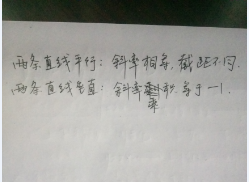 两条直线平行：斜率相等，截距不同.
两条直线垂直：斜率乘积等于-1.